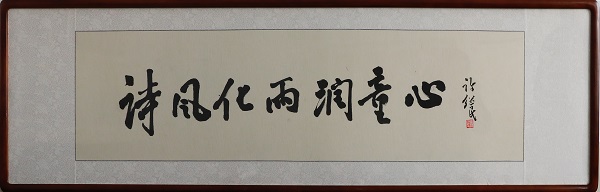 诗风化雨润童心